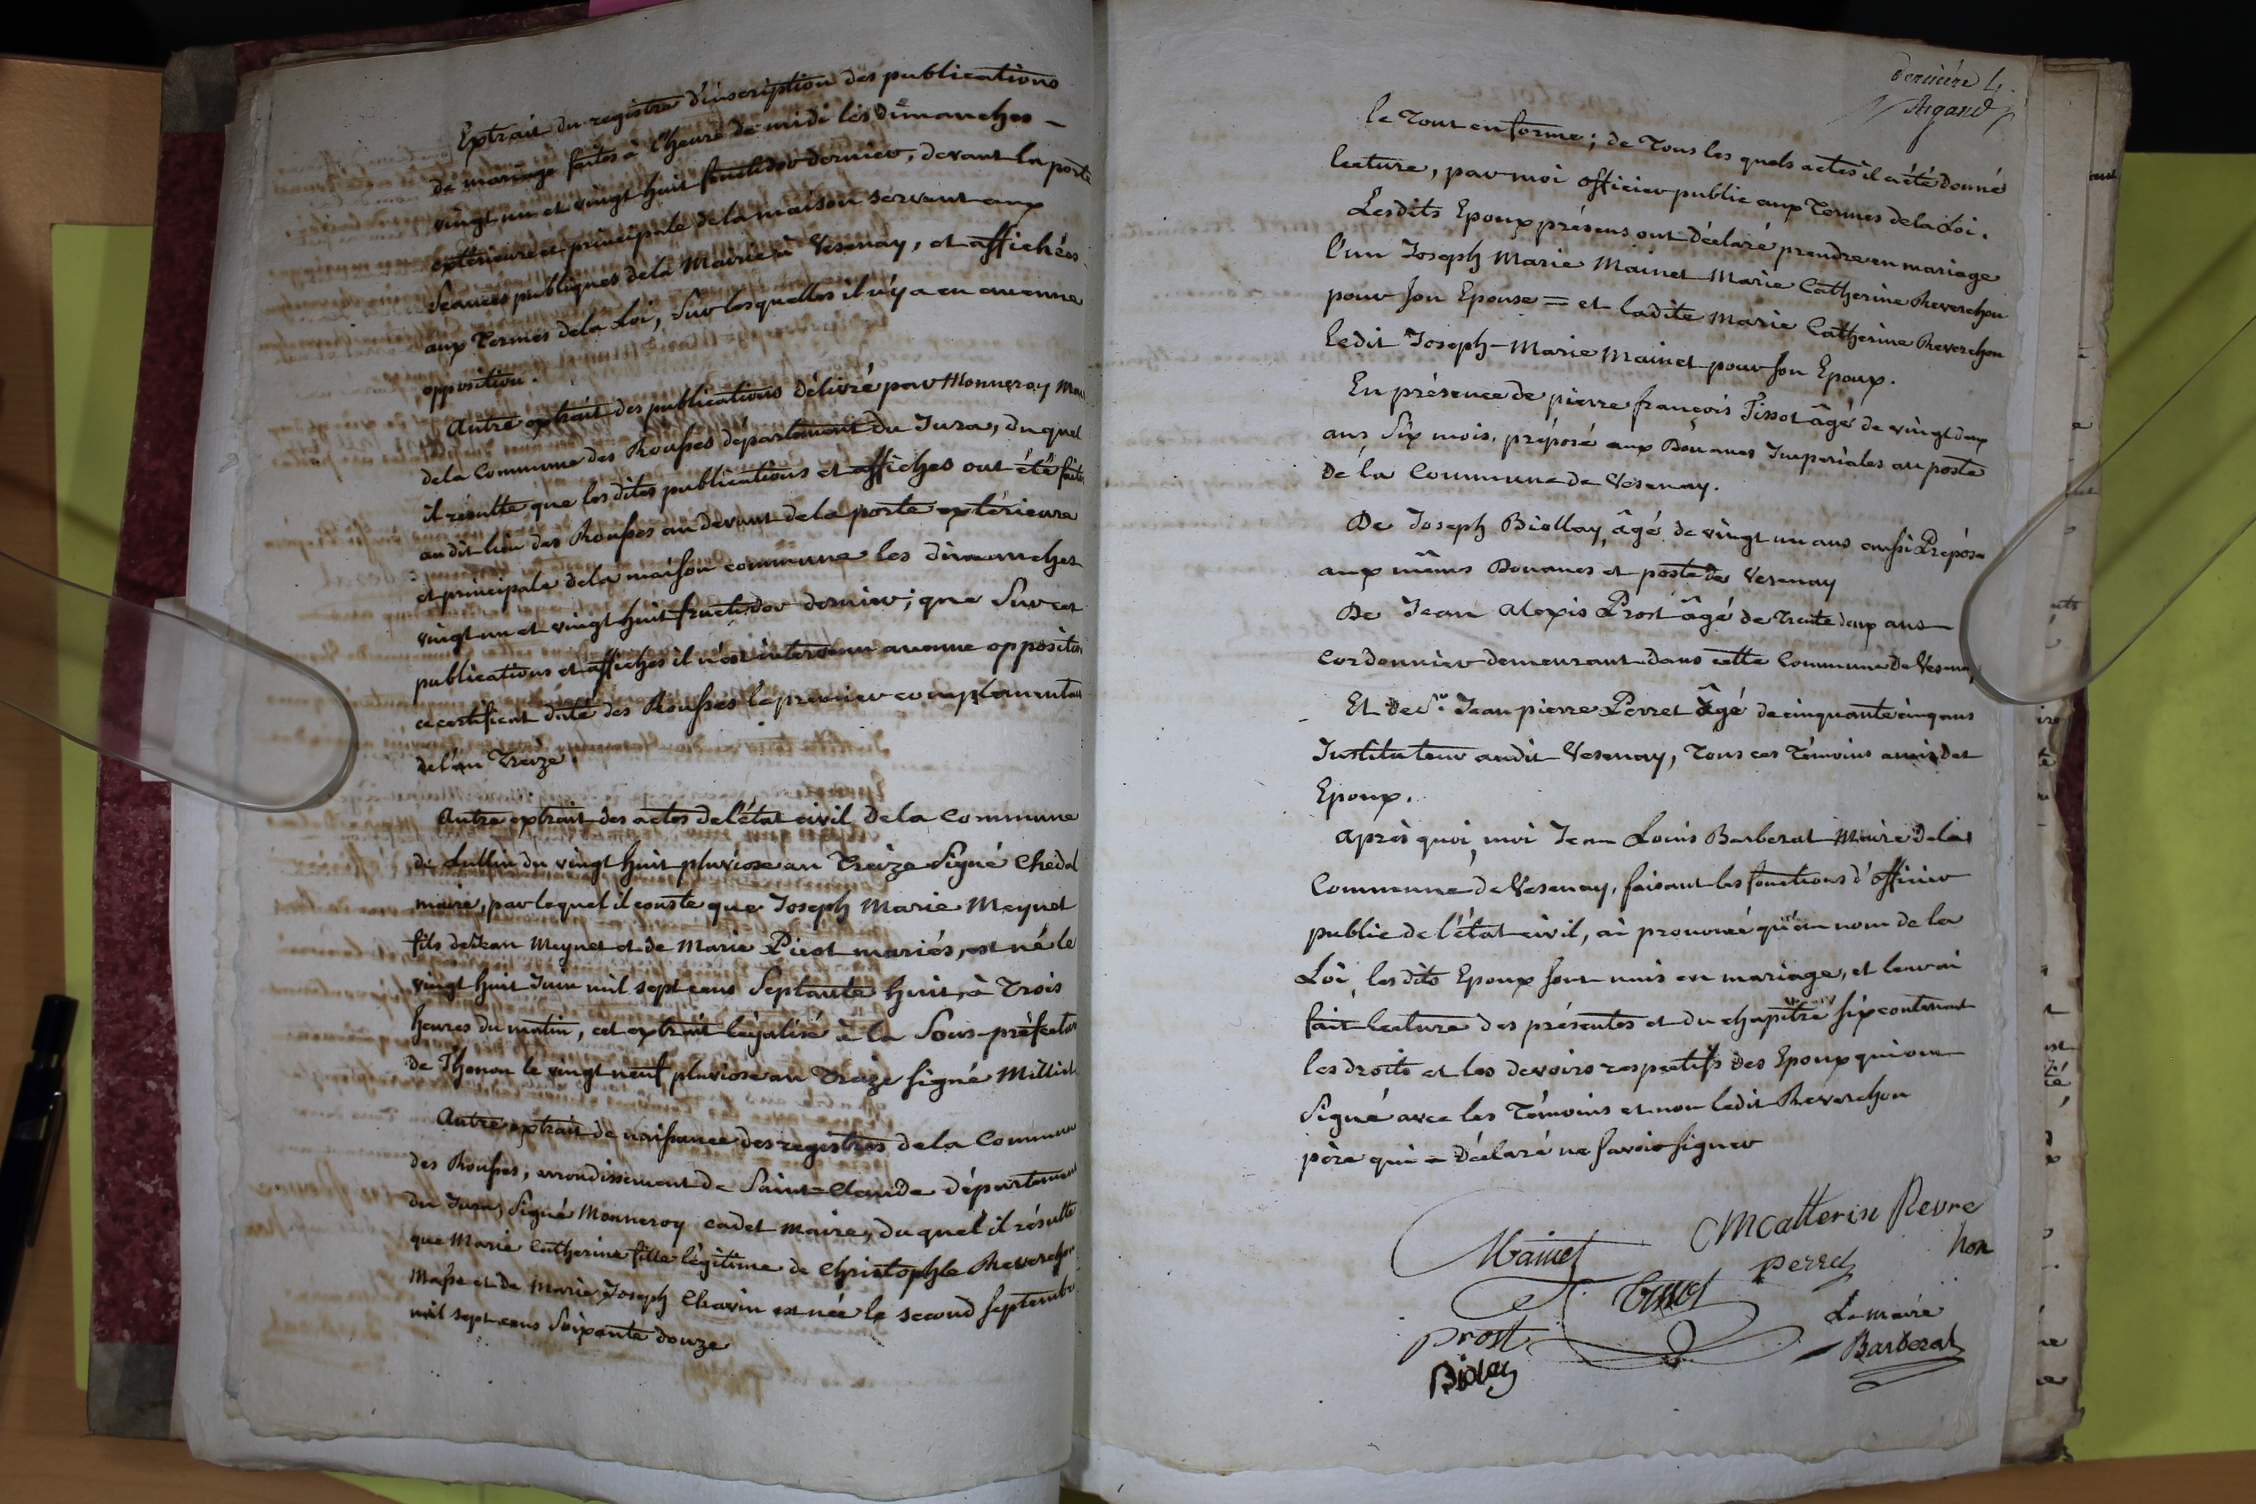 Extrait du registre d'inscription des publications
de mariage faites à l'heure de midi les Dimanches -
vingt un et vingt huit fructidor dernier, devant la porte
extérieure et principale de la maison servant aux
Séances publiques de la Mairie à Vesenay, et affichées
aux termes de la Loi, Sur lesquelles il n'y a eu aucune
opposition.
Autre extrait des publications délivré par Monneroy
de la Commune des Rousses département du Jura, du quel
il résulte que les dites publications et affiches ont été faites
au dit lieu des Rousses au devant de la porte extérieure
et principale de la maison commune les dimanches
vingt un et vingt huit fructidor dernier; que Sur ces
publications et affiches il n'est intervenu aucune opposition
ce certificat daté des Rousses le premier complementaire
de l'an Treize.
Autre extrait des actes de l'état civil de la Commune
de Lullin du vingt huit pluviose an Treize Signé Chedal
maire, par lequel il conste que Joseph Marie Meynet
fils de Jean Meynet et de Marie Picot mariés, est né le
vingt huit Juin mil sept cens Septante huit, à Trois
heures du matin, cet extrait légalisé à la Sous-préfecture
de Thonon le vingt neuf pluviose an Treize signé Milliet
Autre extrait de naissance des registres de la Commune
des Rousses, arrondissement de Saint=Claude département
du Jura, Signé Monneroy cadet maire, du quel il résulte
que Marie Catherine fille légitime de Christophle Reverchon
Masse et de Marie Joseph Chavin est née le second septembre
mil sept cens Soixante douze
dernière 4.
Argand
le Tout en forme; de Tous les quels actes il a été donné
lecture, par moi officier public aux Termes de la Loi.
Lesdits Epoux présens ont déclaré prendre en mariage
l'un Joseph Marie Mainet Marie Catherine Reverchon
pour son Epouse = et ladite Marie Catherine Reverchon
ledit Joseph-Marie Mainet pour son Epoux.
En présence de pierre françois Tissot âgé de vingt deux
ans Six mois, préposé aux Douanes Imperiales au poste
de la Commune de Vesenay.
De Joseph Biollay, âgé de vingt un ans aussi Préposé
aux mêmes Douanes et poste de Vesenay
De Jean Alexis Prost âgé de Trente deux ans
cordonnier demeurant dans cette Commune de Vesenay
Et de Sr. Jean pierre Perret âgé de cinquante cinq ans
Instituteur audit Vesenay, Tous ces Témoins amis des
Epoux.
Après quoi, moi Jean Louis Barberat Maire de la
Commune de Vesenay, faisant les fonctions d'officier
public de l'état civil, ai prononcé qu'au nom de la
Loi, les dits Epoux sont unis en mariage, et leur ai
fait lecture des présentes et du chapitre six contenant
les droits et les devoirs respectifs des Epoux qui ont
Signé avec les Témoins et non ledit Reverchon
père qui a déclaré ne savoir signer
Mainet
M Catterine Revre
hon
Tissot
perret
prost
Le maire
Barberat
Biolay